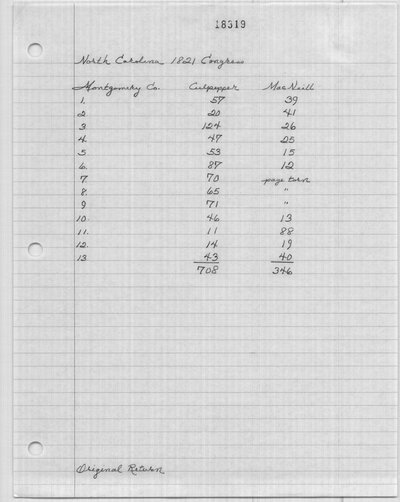 18319
North Carolina 1821 Congress
Montgomery Co. Culpepper MacNeill
1. 57 39
2 20 41
3. 124 26
4. 47 25
5 53 15
6. 87 12
7 70 page torn
8. 65 "
9 71 "
10. 46 13
11. 11 88
12. 14 19
13. 43 40
708 346
Original Return